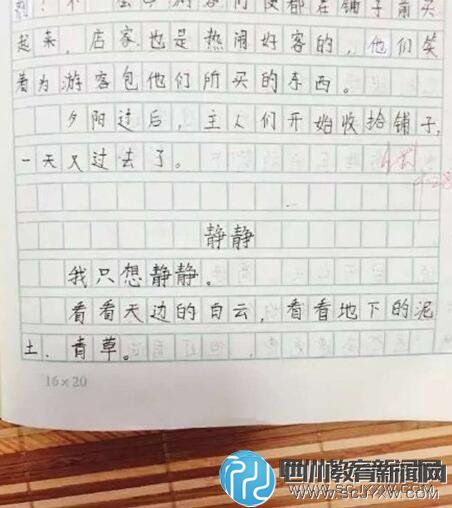 起来，店家也是热闹好客的，他们笑
着为游客包他们所买的东西。
夕阳过后，主人们开始收拾铺子，
一天又过去了。
静静
我只想静静。
看看天边的白云，看看地下的泥
土、青草。
16×20
四川教育新闻网
WWW.SCJYXW.COM